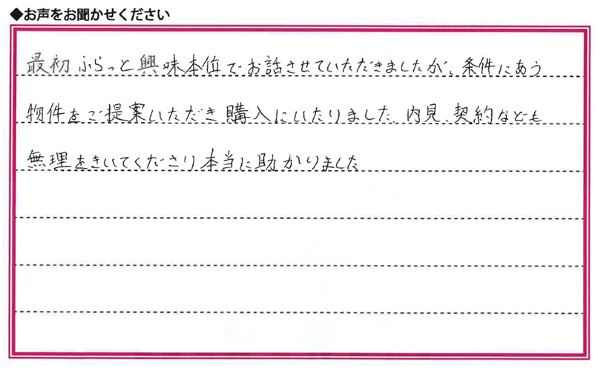 ◆お声をお聞かせください
最初ふらっと興味本位でお話させていただきましたが、条件にあう
物件をご提案いただき購入にいたりました。内見、契約なども
無理をきいてくださり本当に助かりました